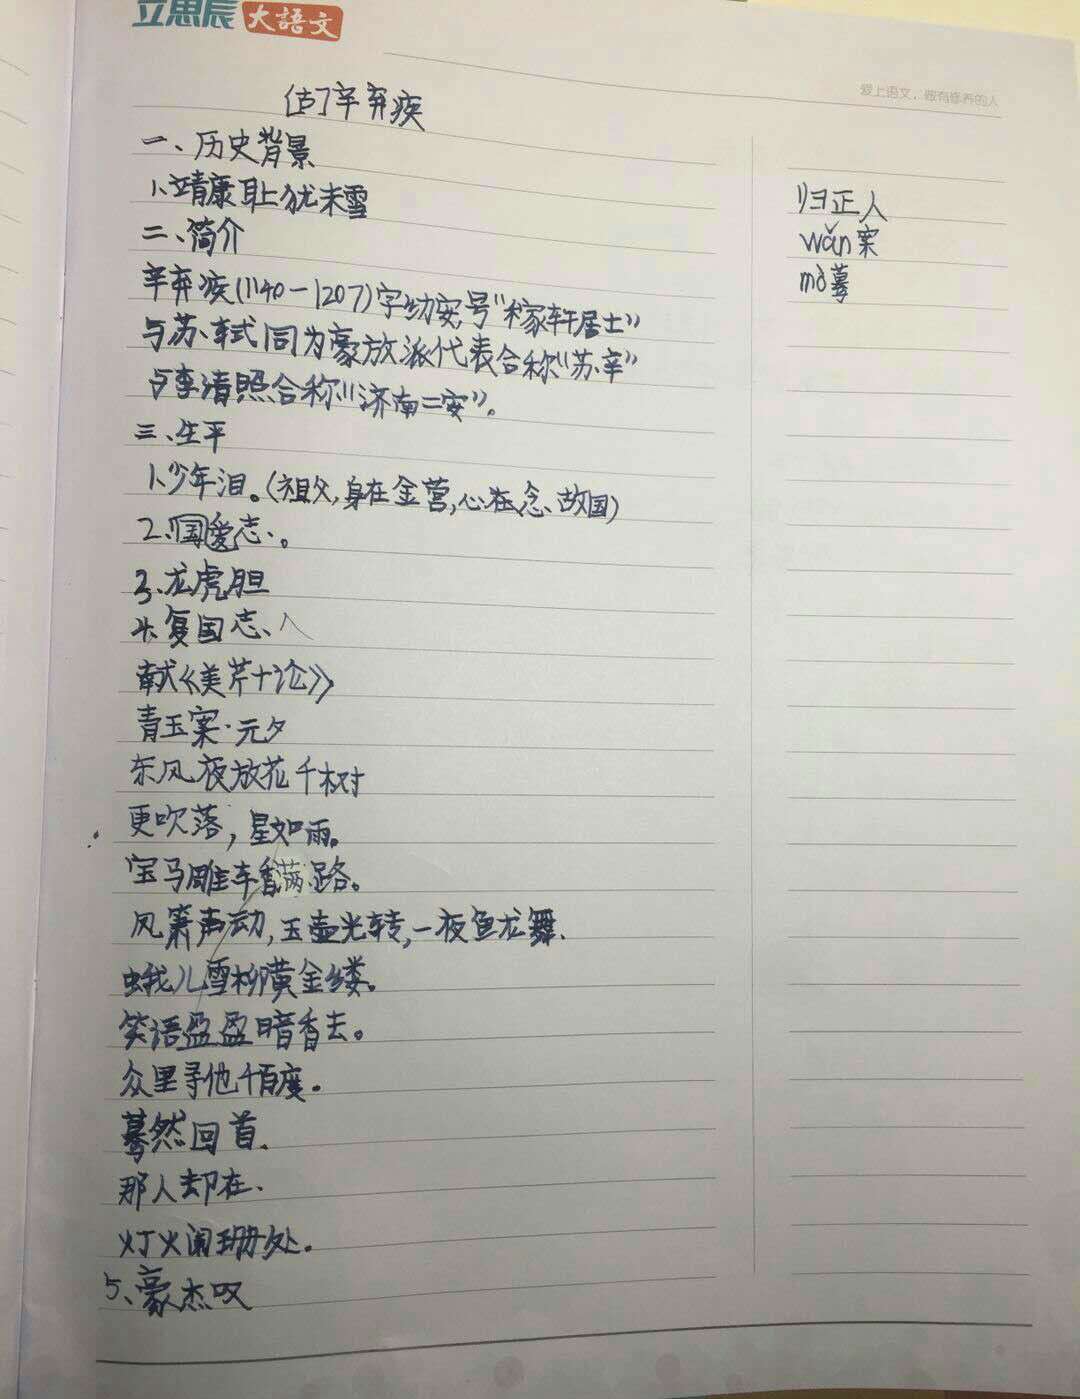 立思辰 大語文
爱上语文，做有修养的人
(古)辛弃疾
一、历史背景
1、靖康耻犹未雪
二、简介
辛弃疾(1140—1207)字幼安号"稼轩居士"
与苏轼同为豪放派代表合称"苏辛"
与李清照合称"济南二安"。
三、生平
1、少年泪。(祖父,身在金营,心在念、故国)
2、国爱志。
3、龙虎胆
4、复国志、
献《美芹十论》
青玉案·元夕
东风夜放花千树
更吹落，星如雨。
宝马雕车香满路。
凤箫声动,玉壶光转,一夜鱼龙舞.
蛾儿雪柳黄金缕。
笑语盈盈暗香去。
众里寻他千百度。
蓦然回首.
那人却在.
灯火阑珊处.
5、豪杰叹
归正人
wǎn案
mò蓦